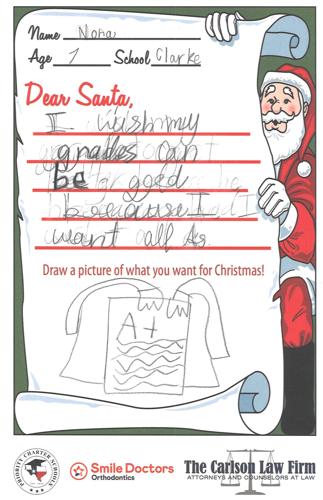 Name Nora
Age 7 School Clarke
Dear Santa,
I wish my
grades can
be good
because I
want all As
Draw a picture of what you want for Christmas!
A+
PRIORITY CHARTER SCHOOLS
Smile Doctors
Orthodontics
The Carlson Law Firm
ATTORNEYS AND COUNSELORS AT LAW